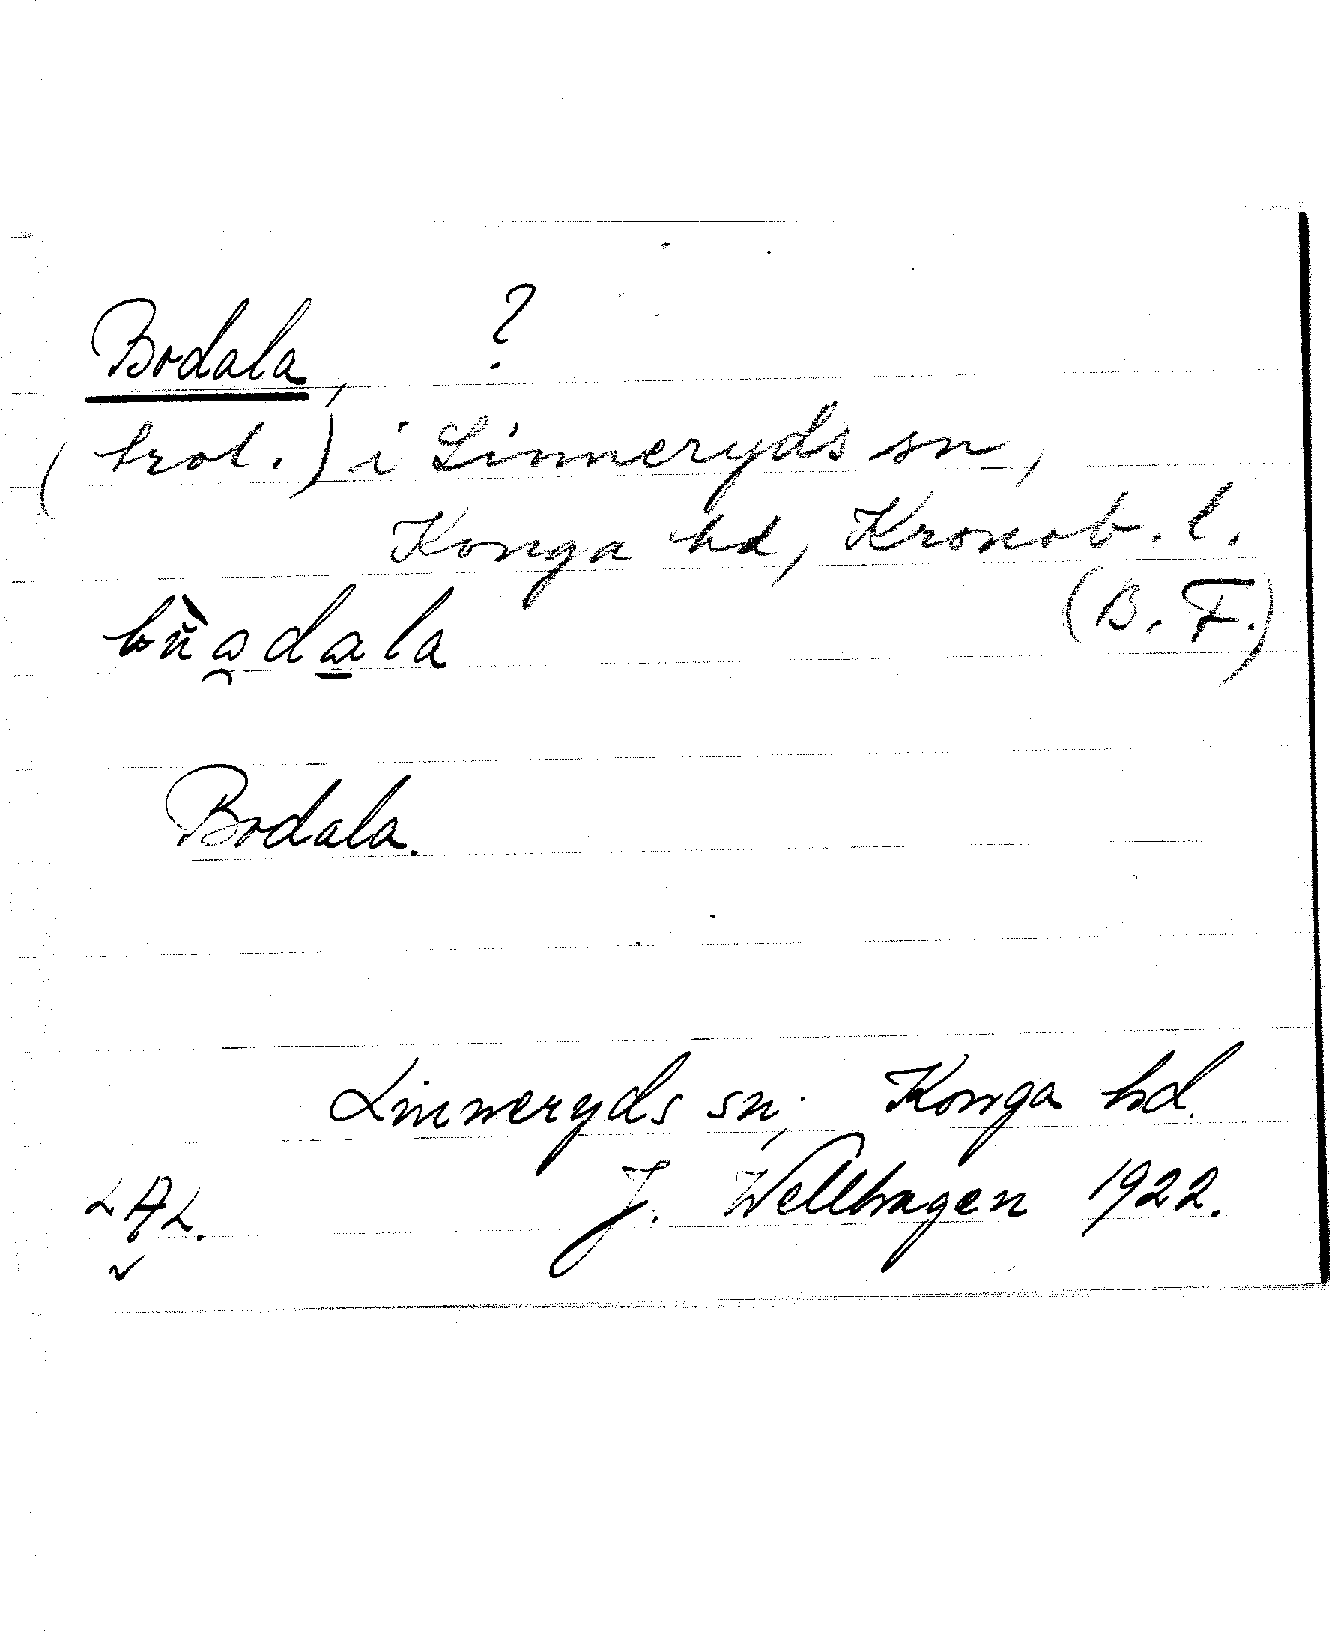 Bodala, ?
(trol.) i Linneryds sn,
Konga hd, Kronob. l.
(B. F.)
Bodala.
Linneryds sn; Konga hd.
J. Wellhagen 1922.